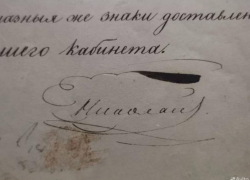 разныя же знаки доставлен
шего кабинета.
Николай